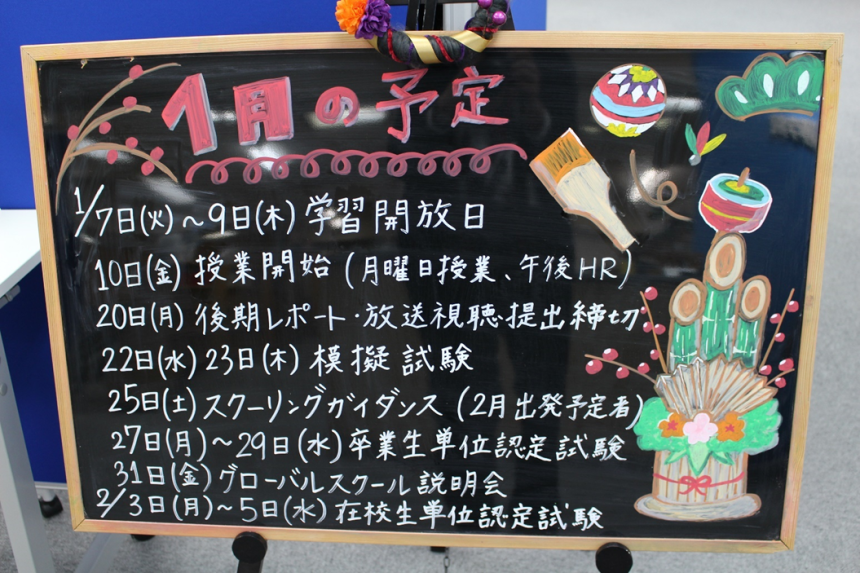 1月の予定
1/7日(火)~9日(木)学習開放日
10日(金)授業開始(月曜日授業、午後HR)
20日(月)後期レポート・放送視聴提出締切
22日(水)23日(木)模擬試験
25日(土)スクーリングガイダンス(2月出発予定者)
27日(月)~29日(水)卒業生単位認定試験
31日(金)グローバルスクール説明会
2/3日(月)~5日(水)在校生単位認定試験